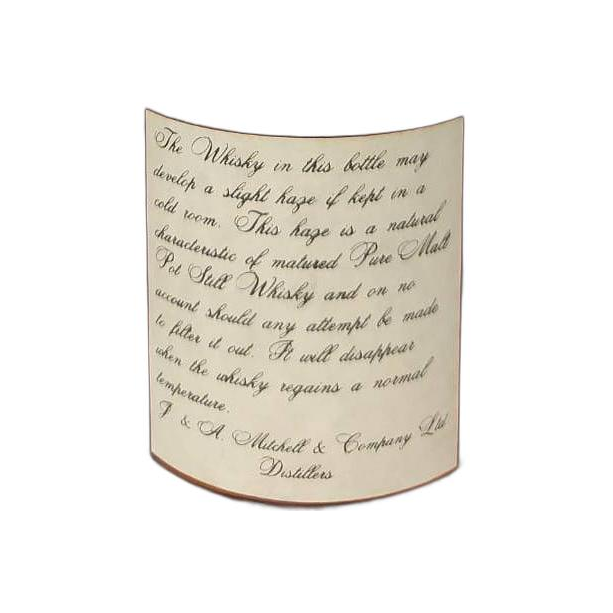 The Whisky in this bottle may
develop a slight haze if kept in a
cold room. This haze is a natural
characteristic of matured Pure Malt
Pot Still Whisky and on no
account should any attempt be made
to filter it out. It will disappear
when the whisky regains a normal
temperature.
J & A. Mitchell & Company Ltd
Distillers